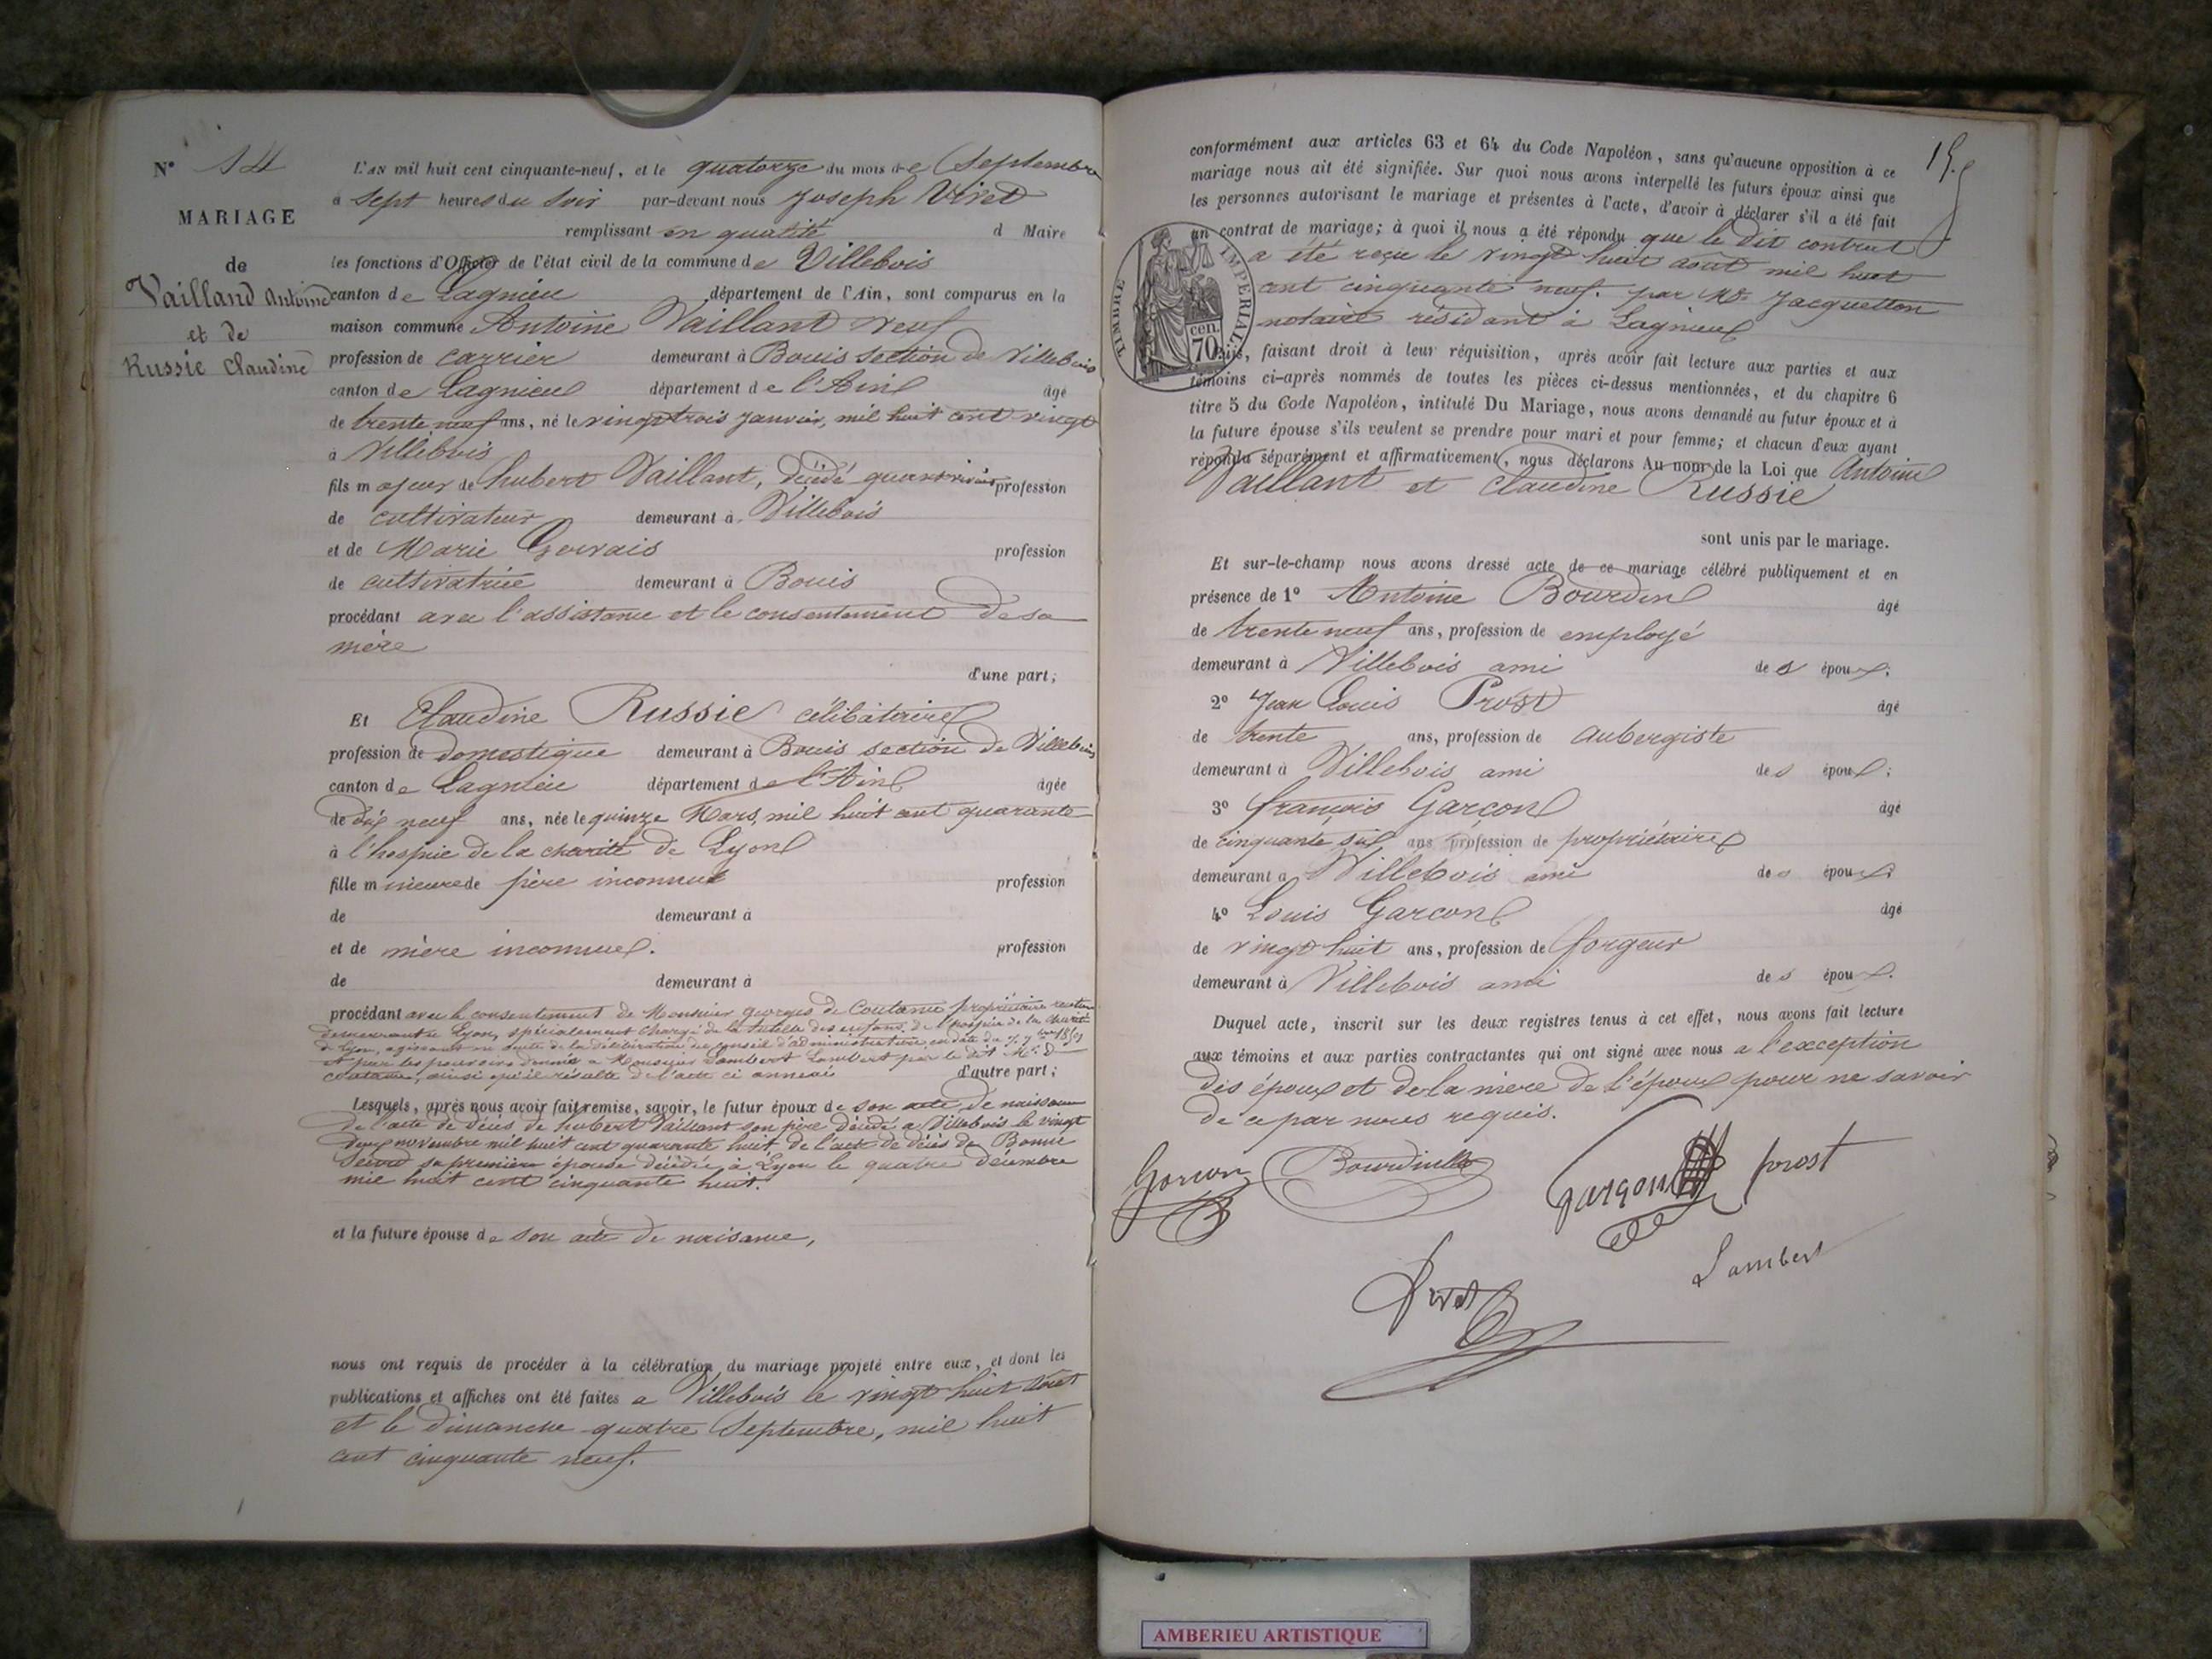 N° 14
MARIAGE
de
Vailland Antoine
et de
Russie Claudine
L'AN mil huit cent cinquante-neuf, et le quatorze du mois de Septembre
à sept heures du soir par-devant nous Joseph Vivet
remplissant en qualité d Maire
les fonctions d'Officier de l'état civil de la commune de Villebois
canton de Lagnieu département de l'Ain, sont comparus en la
maison commune Antoine Vaillant veuf
profession de carrier demeurant à Bouis section de Villebois
canton de Lagnieu département de l'Ain âgé
de trente neuf ans, né le vingt trois Janvier, mil huit cent vingt
à Villebois
fils majeur de hubert Vaillant, décédé quand vivait profession
de cultivateur demeurant à Villebois
et de Marie Gervais profession
de cultivatrice demeurant à Bouis
procédant avec l'assistance et le consentement de sa
mère
d'une part;
Et Claudine Russie célibataire
profession de domestique demeurant à Bouis section de Villebois
canton de Lagnieu département de l'Ain âgée
de dix neuf ans, née le quinze Mars, mil huit cent quarante
à l'hospice de la charité de Lyon
fille mineure de père inconnue profession
de demeurant à
et de mère inconnue. profession
de demeurant à
procédant avec le consentement de Monsieur georges de Coutance propriétaire rentier
demeurant à Lyon, spécialement chargé de la tutelle des enfans de l'hospice de la charité
de Lyon, agissant en suite de la délibération du conseil d'administration en date du 7 7bre 1859
et par les pouvoirs donnés a Monsieur Lambert Lambert par le dit Mr. de
Coutance, ainsi qu'il résulte de l'acte ci annexé d'autre part;
Lesquels, après nous avoir fait remise, savoir, le futur époux de son acte de naissance
de l'acte de décès de hubert Vaillant son père décédé a Villebois le vingt
deux novembre mil huit cent quarante huit, de l'acte de décès de Bonne
sa première épouse décédée à Lyon le quatre décembre
mil huit cent cinquante huit.
et la future épouse de son acte de naissance,
nous ont requis de procéder à la célébration du mariage projeté entre eux, et dont les
publications et affiches ont été faites a Villebois le vingt huit Aout
et le dimanche quatre Septembre, mil huit
cent cinquante neuf.
15.
conformément aux articles 63 et 64 du Code Napoléon, sans qu'aucune opposition à ce
mariage nous ait été signifiée. Sur quoi nous avons interpellé les futurs époux ainsi que
les personnes autorisant le mariage et présentes à l'acte, d'avoir à déclarer s'il a été fait
un contrat de mariage; à quoi il nous a été répondu que le dit contrat
a été reçu le vingt huit août mil huit
cent cinquante neuf. par Me. Jacquetton
notaire résidant à Lagnieu
TIMBRE IMPERIAL
70 cen.
Puis, faisant droit à leur réquisition, après avoir fait lecture aux parties et aux
témoins ci-après nommés de toutes les pièces ci-dessus mentionnées, et du chapitre 6
titre 5 du Code Napoléon, intitulé Du Mariage, nous avons demandé au futur époux et à
la future épouse s'ils veulent se prendre pour mari et pour femme; et chacun d'eux ayant
répondu séparément et affirmativement, nous déclarons Au nom de la Loi que Antoine
Vaillant et Claudine Russie
sont unis par le mariage.
Et sur-le-champ nous avons dressé acte de ce mariage célébré publiquement et en
présence de 1° Antoine Bourdin âgé
de trente neuf ans, profession de employé
demeurant à Villebois ami des époux;
2° Jean Louis Prost âgé
de trente ans, profession de aubergiste
demeurant à Villebois ami des époux;
3° françois Garçon âgé
de cinquante six ans profession de propriétaire
demeurant à Villebois ami des époux;
4° Louis Garçon âgé
de vingt huit ans, profession de forgeur
demeurant à Villebois ami des époux.
Duquel acte, inscrit sur les deux registres tenus à cet effet, nous avons fait lecture
aux témoins et aux parties contractantes qui ont signé avec nous a l'exception
des époux et de la mère de l'époux pour ne savoir
de ce par nous requis.
Garcon Bourdin garçon prost
Lambert
Vivet
AMBERIEU ARTISTIQUE